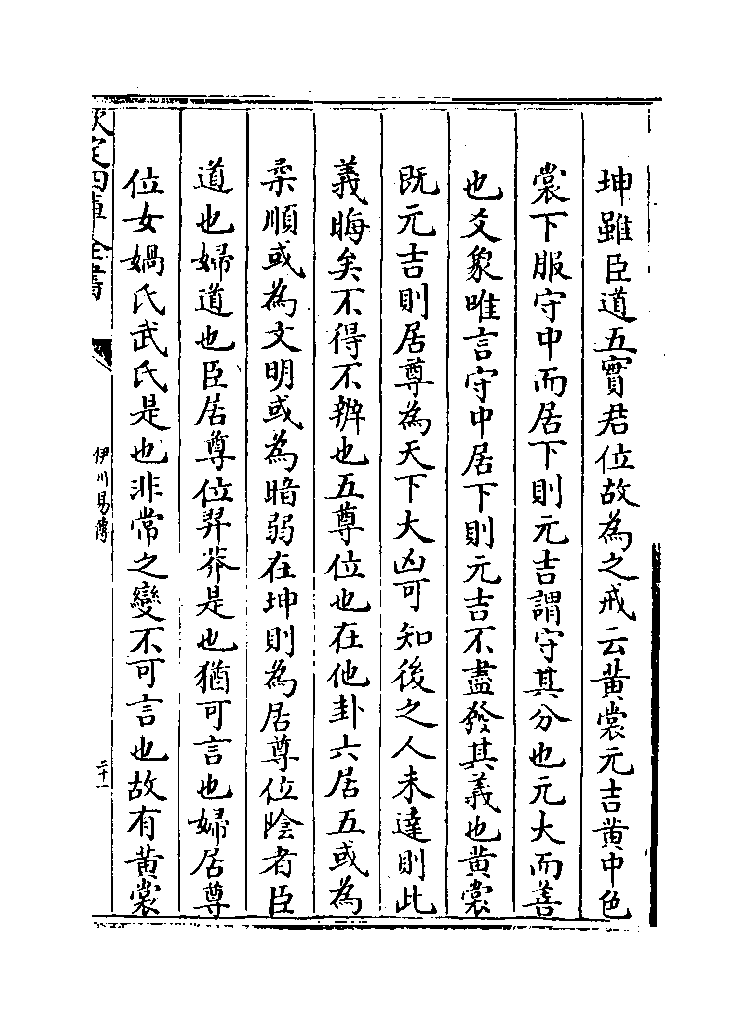 坤雖臣道五實君位故為之戒云黄裳元吉黄中色
裳下服守中而居下則元吉謂守其分也元大而善
也爻象唯言守中居下則元吉不盡發其義也黄裳
既元吉則居尊為天下大凶可知後之人未達則此
義晦矣不得不辨也五尊位也在他卦六居五或為
柔順或為文明或為暗弱在坤則為居尊位陰者臣
道也婦道也臣居尊位羿莽是也猶可言也婦居尊
位女媧氏武氏是也非常之變不可言也故有黄裳
欽定四庫全書
伊川易傳
二十一